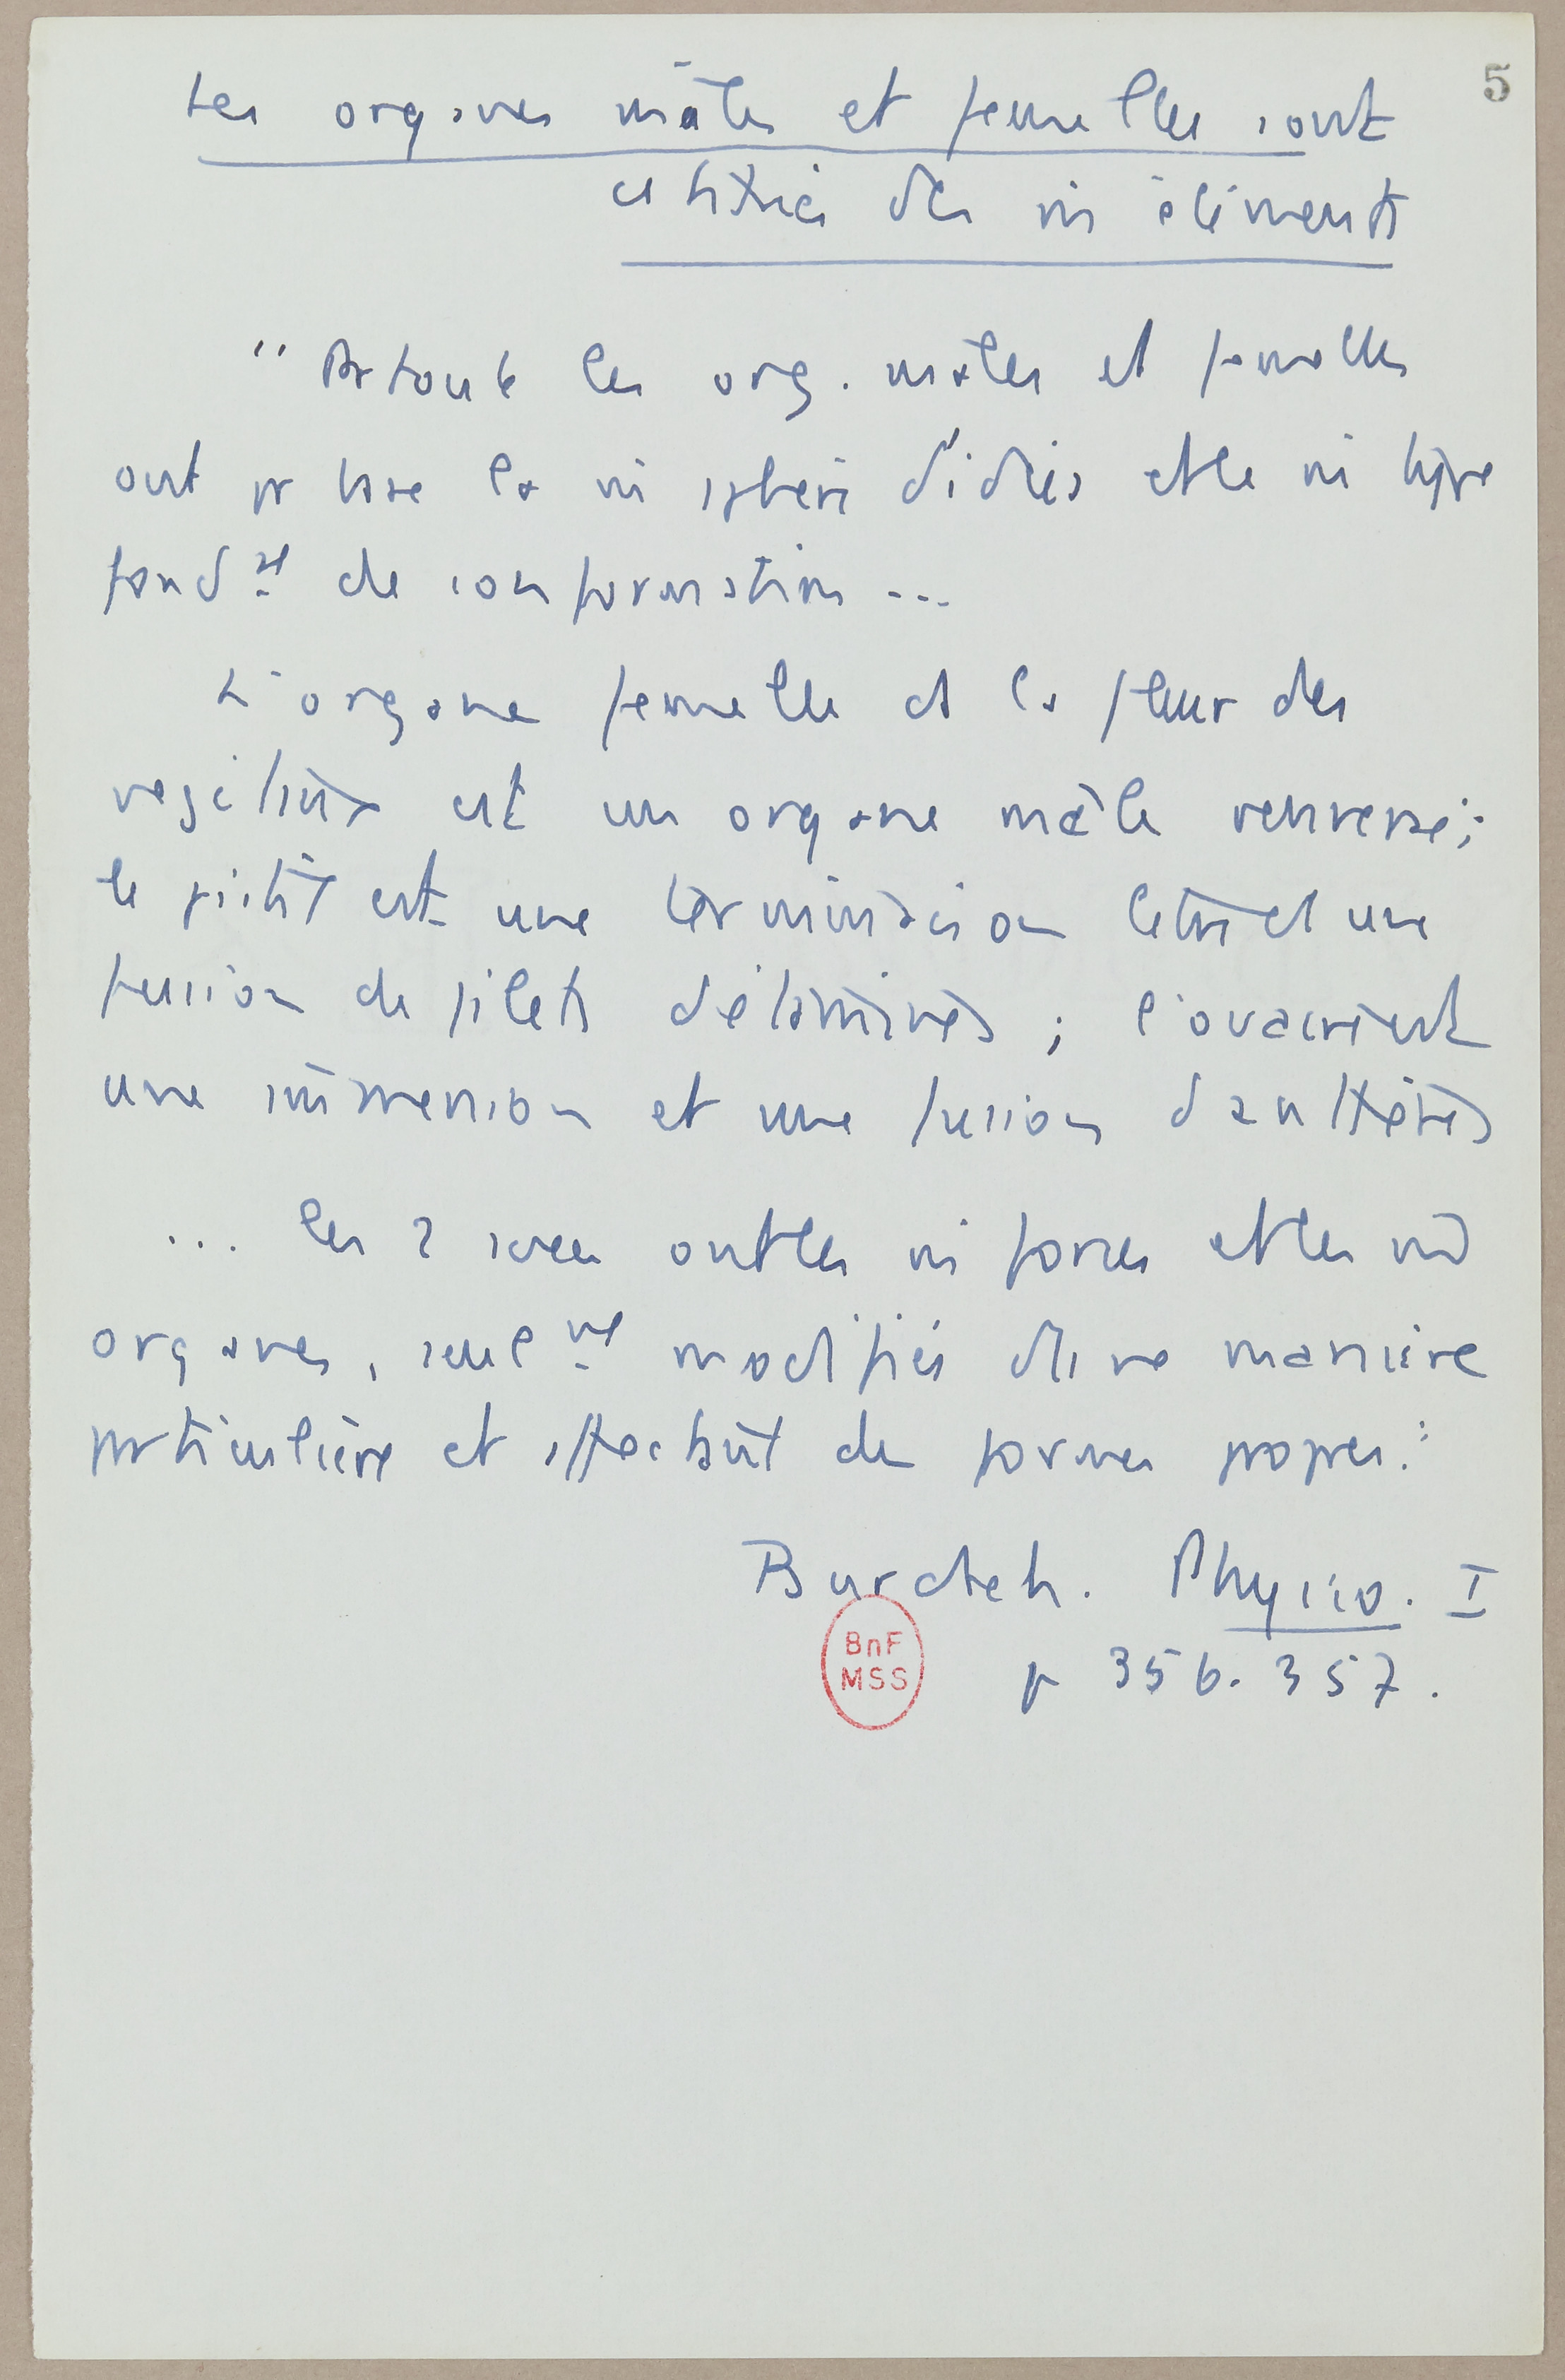 5
Les organes mâles et femelles sont
constitués des m̂ éléments
"Partout les org. mâles et femelles
ont pr base la m̂ sphère d'idées et le m̂ type
fond^al de conformation ...
L'organe femelle de la fleur des
végétaux est un organe mâle renversé;
le pistil est une terminaison et une
fusion de filets d'étamines ; l'ovaire est
une immersion et une fusion d'anthères
... les 2 sexes ont les m̂ forces et les m̂
organes, seul^mt modifiés d'une manière
particulière et affectant des formes propres."
Burdach. Physio. I
p 356. 357.
BnF
MSS